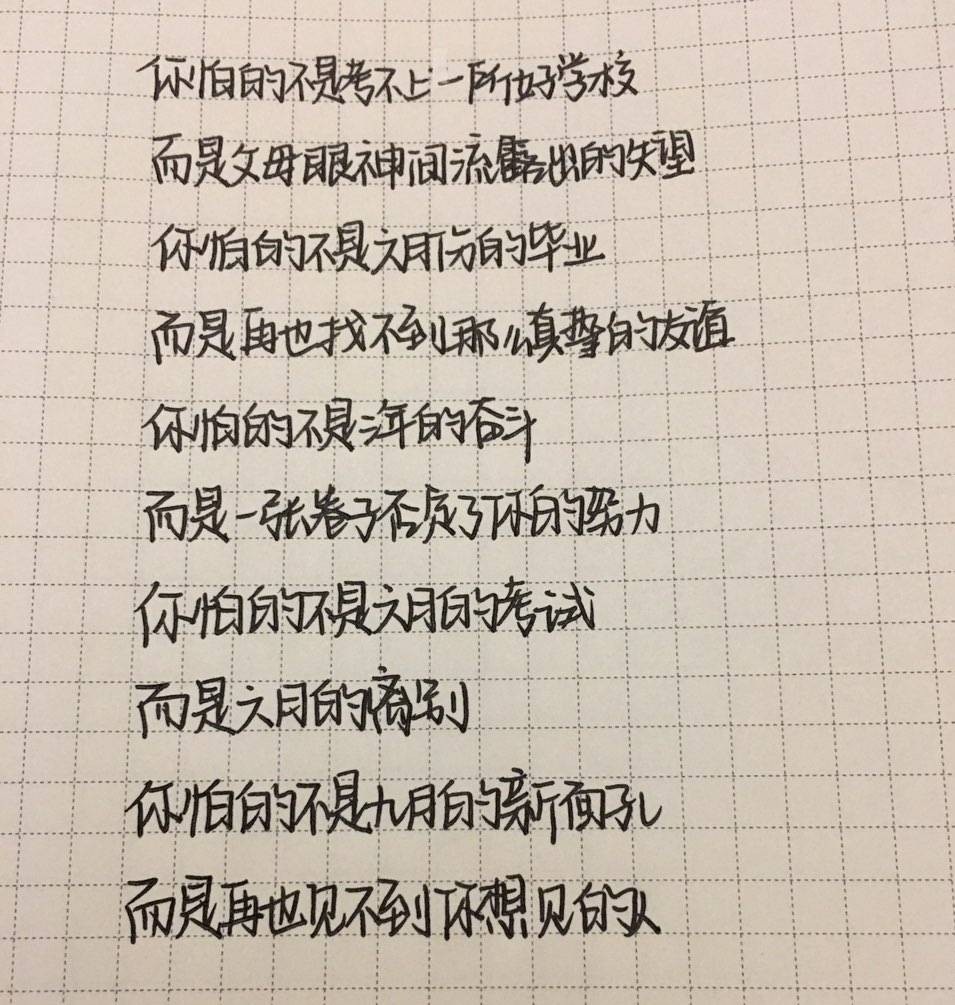 你怕的不是考不上一所好学校
而是父母眼神间流露出的失望
你怕的不是六月份的毕业
而是再也找不到那么真挚的友谊
你怕的不是三年的奋斗
而是一张卷子否定了你的努力
你怕的不是六月的考试
而是六月的离别
你怕的不是九月的新面孔
而是再也见不到你想见的人